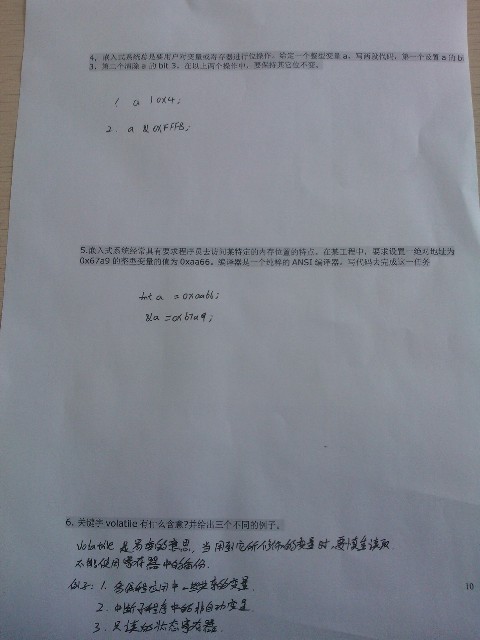 4、嵌入式系统总是要用户对变量或寄存器进行位操作。给定一个整型变量a，写两段代码，第一个设置a的b
3，第二个清除a 的bit 3。在以上两个操作中，要保持其它位不变。
1. a | 0x4;
2. a & 0xFFFB;
5.嵌入式系统经常具有要求程序员去访问某特定的内存位置的特点。在某工程中，要求设置一绝对地址为
0x67a9的整型变量的值为0xaa66。编译器是一个纯粹的ANSI编译器。写代码去完成这一任务
int a = 0xaa66;
&a = 0x67a9;
6、关键字volatile有什么含意?并给出三个不同的例子。
volatile 是易变的意思，当用到它所修饰的变量时，要慎重读取
不能使用寄存器中的备份.
例子: 1. 多线程应用中一些共享的变量.
2. 中断子程序中的非自动变量.
3. 只读的状态寄存器.
10